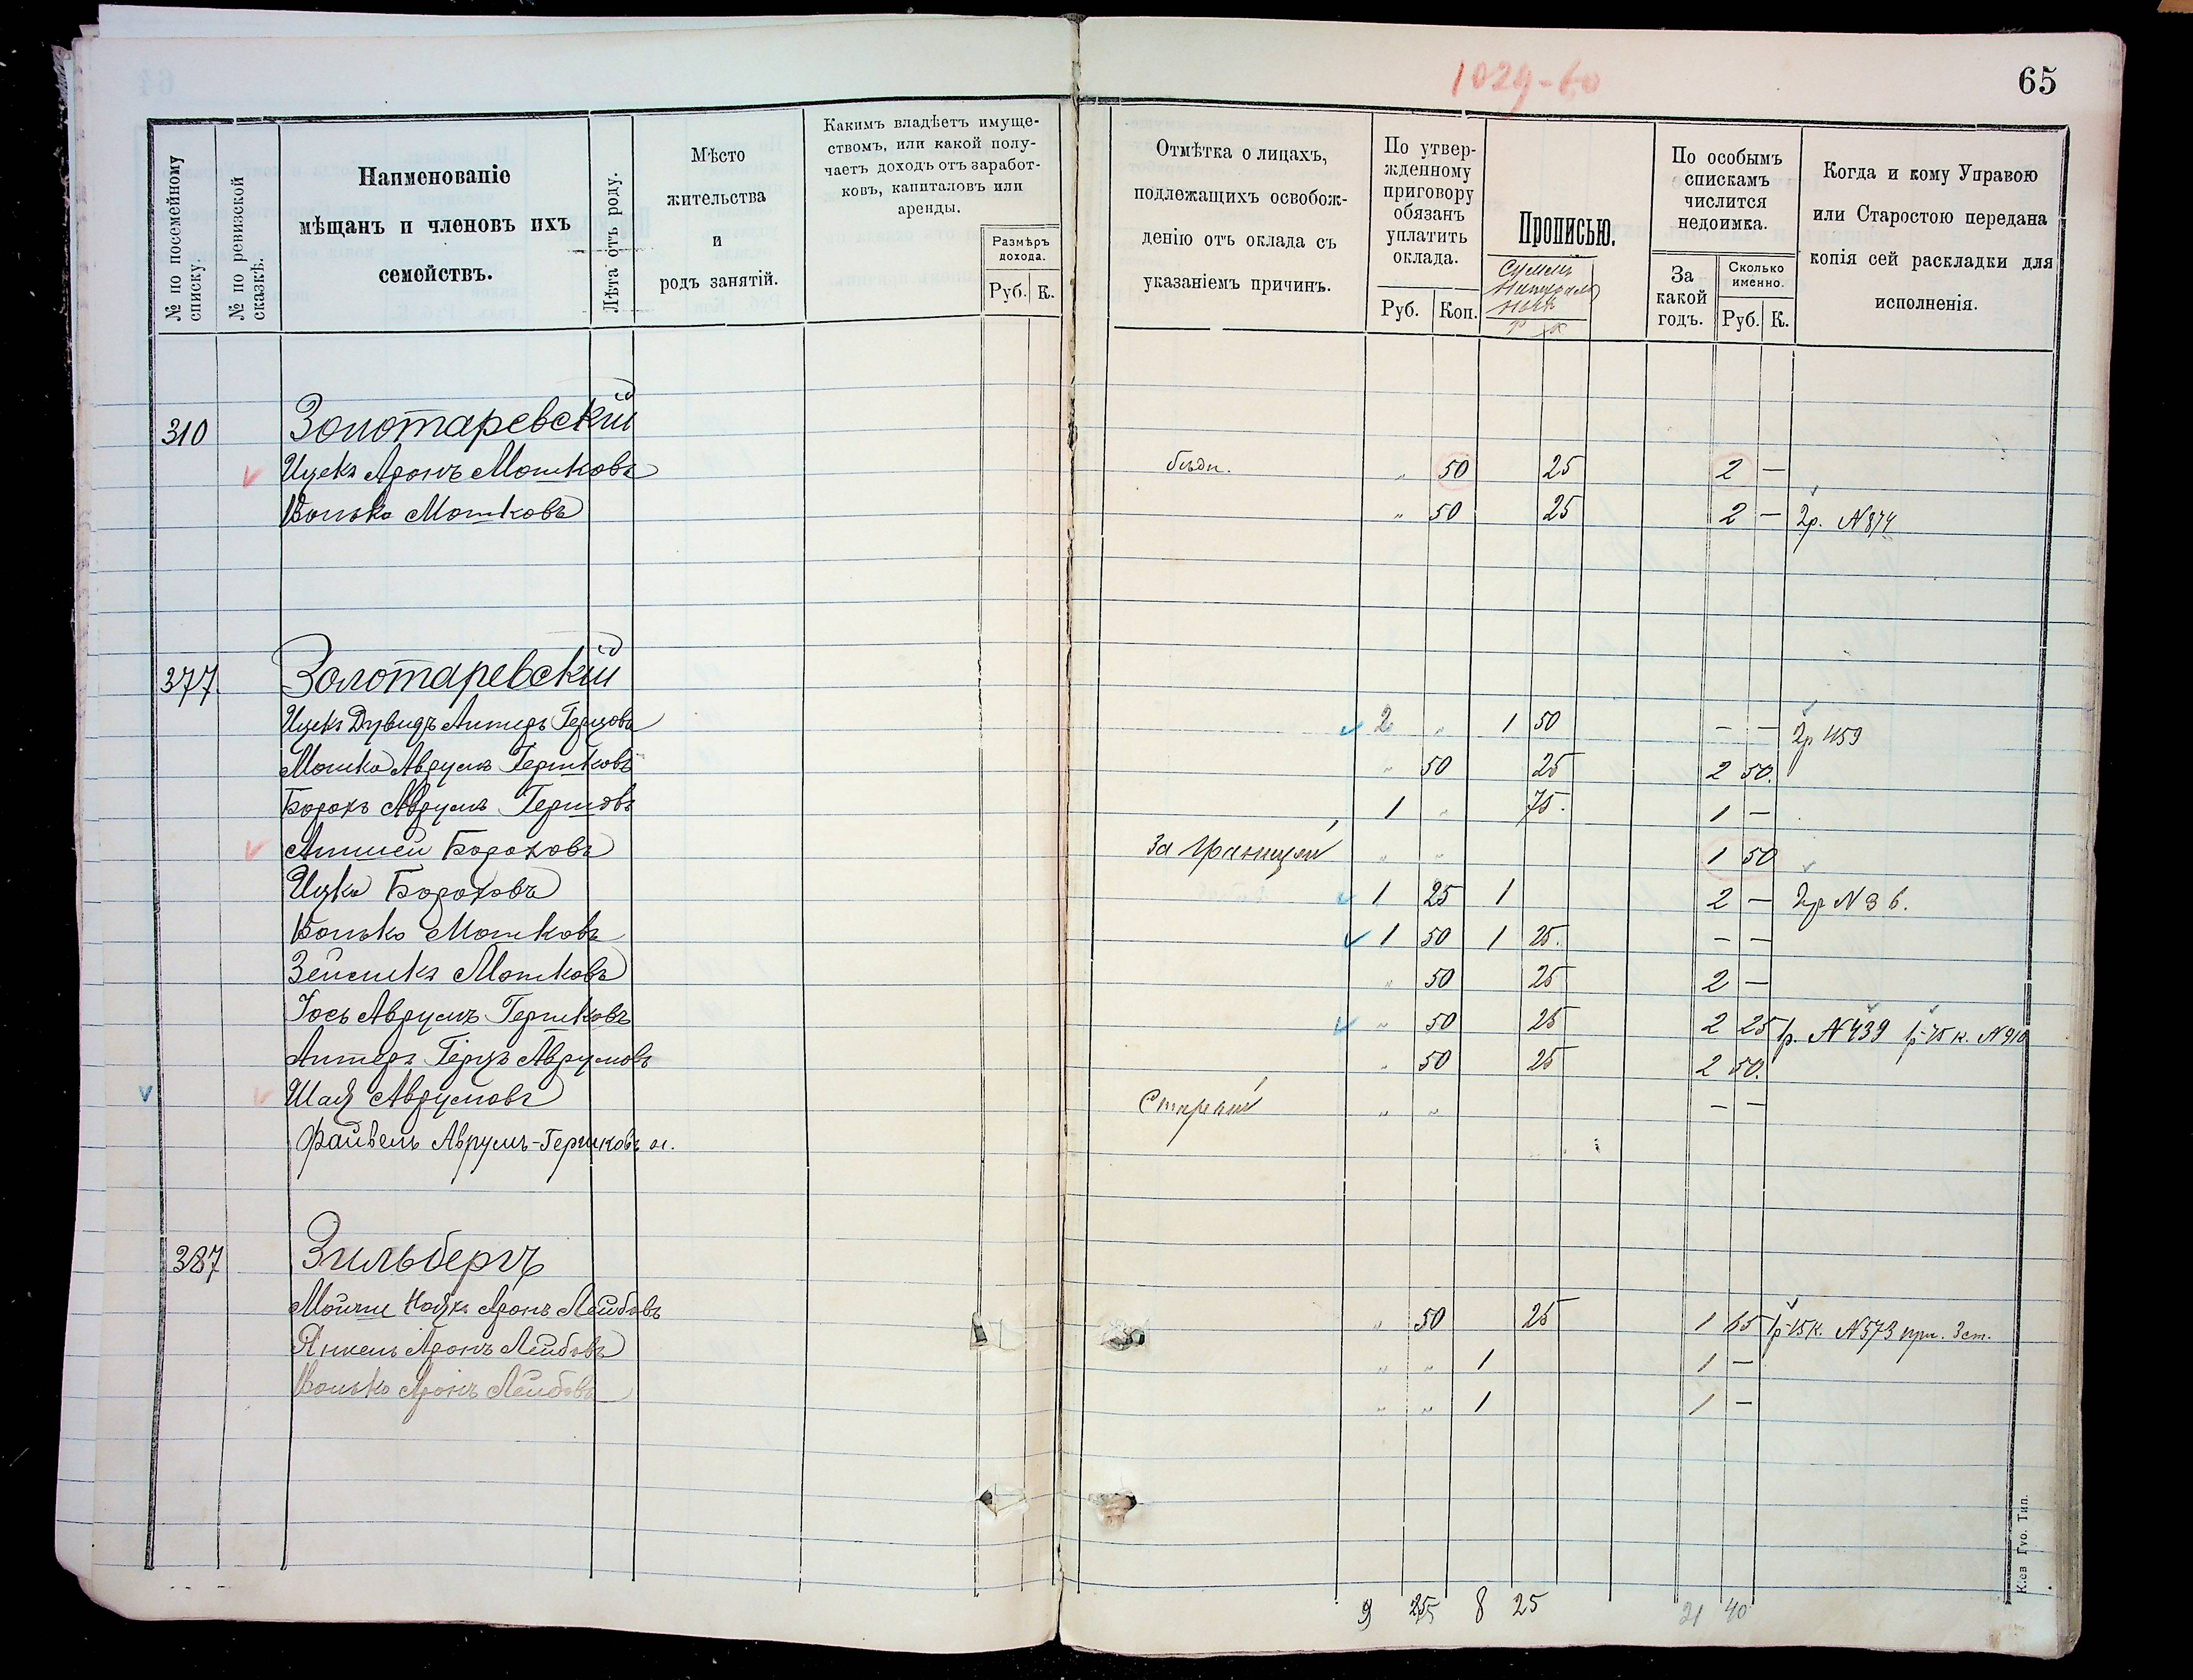 1029-60
65
№ по посемейному списку.
№ по ревизской сказкѣ.
Наименованіе
мѣщанъ и членовъ ихъ
семействъ.
Лѣта отъ роду.
Мѣсто
жительства
и
родъ занятій.
Какимъ владѣетъ имуще-
ствомъ, или какой полу-
чаетъ доходъ отъ заработ-
ковъ, капиталовъ или
аренды.
Размѣръ дохода.
Руб. К.
Отмѣтка о лицахъ,
подлежащихъ освобож-
денію отъ оклада съ
указаніемъ причинъ.
По утвер-
жденному
приговору
обязанъ
уплатить
оклада.
Руб. Коп.
Прописью.
Р К
По особымъ
спискамъ
числится
недоимка.
За какой годъ.
Сколько именно.
Руб. К.
Когда и кому Управою
или Старостою передана
копія сей раскладки для
исполненія.
310 Золотаревскій
Ицекъ Аронъ Мошковъ бѣдн. " 50 25 2 —
Волько Мошковъ " 50 25 2 — 2р. N 874
377. Золотаревскій
Ицекъ Дувидъ Герцовъ 2 " 1 50 — — 2р 459
Мошко Аврумъ Гершковъ " 50 25 2 50.
Борохъ Аврумъ Гершовъ 1 " 75. 1 —
Бороховъ За границей " " 1 50
Ицко Бороховъ 1 25 1 2 — 2р N 36.
Волько Мошковъ 1 50 1 25. — —
Зейликъ Мошковъ " 50 25 2 —
Іось Аврумъ Гершковъ " 50 25 2 25 1р. N 439 1р-75 к. N 910
Герцъ Аврумовъ " 50 25 2 50.
Шая Аврумовъ " " — —
Файвель Аврумъ-Гершковъ
387 Зильбергъ
Аронъ Лейбовъ " 50 25 1 65 1р-15к. N 573
Янкель Аронъ Лейбовъ " " 1 1 —
Волько Аронъ Лейбовъ " " 1 1 —
9 25 8 25 21 40
Кіев Губ. Тип.